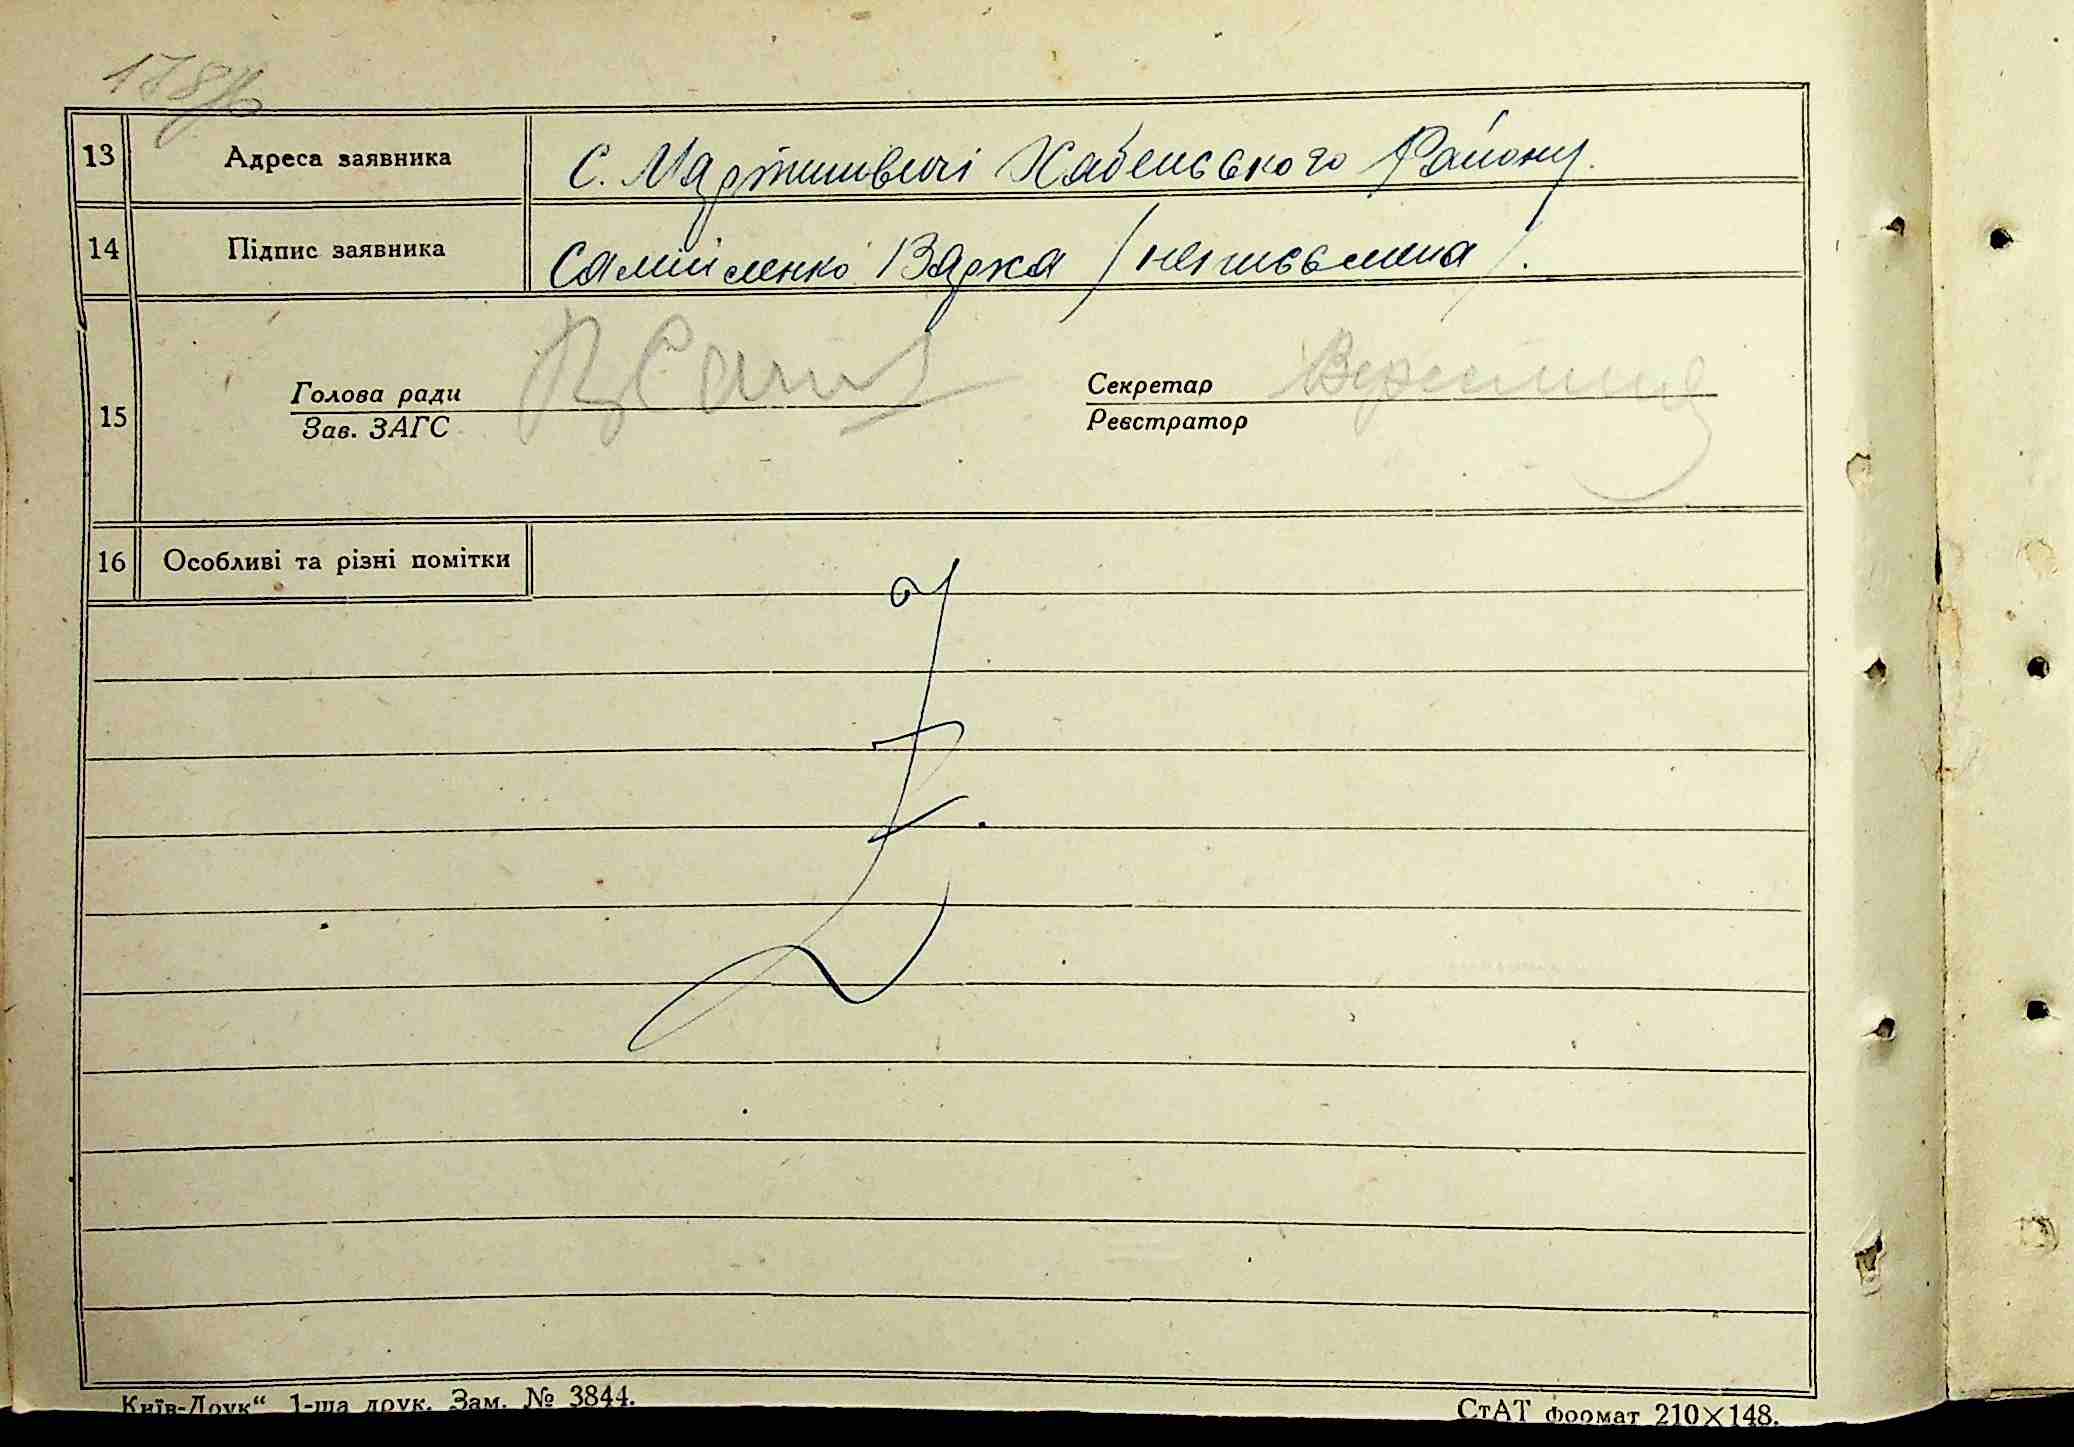 178
13 Адреса заявника С. Мартиновичі Хабенського Району.
14 Підпис заявника Самійленко Варка /неписьмена/.
15 Голова ради Секретар
Зав. ЗАГС Реєстратор
16 Особливі та різні помітки
Київ-Друк“ 1-ша друк. Зам. № 3844. СтАТ формат 210×148.